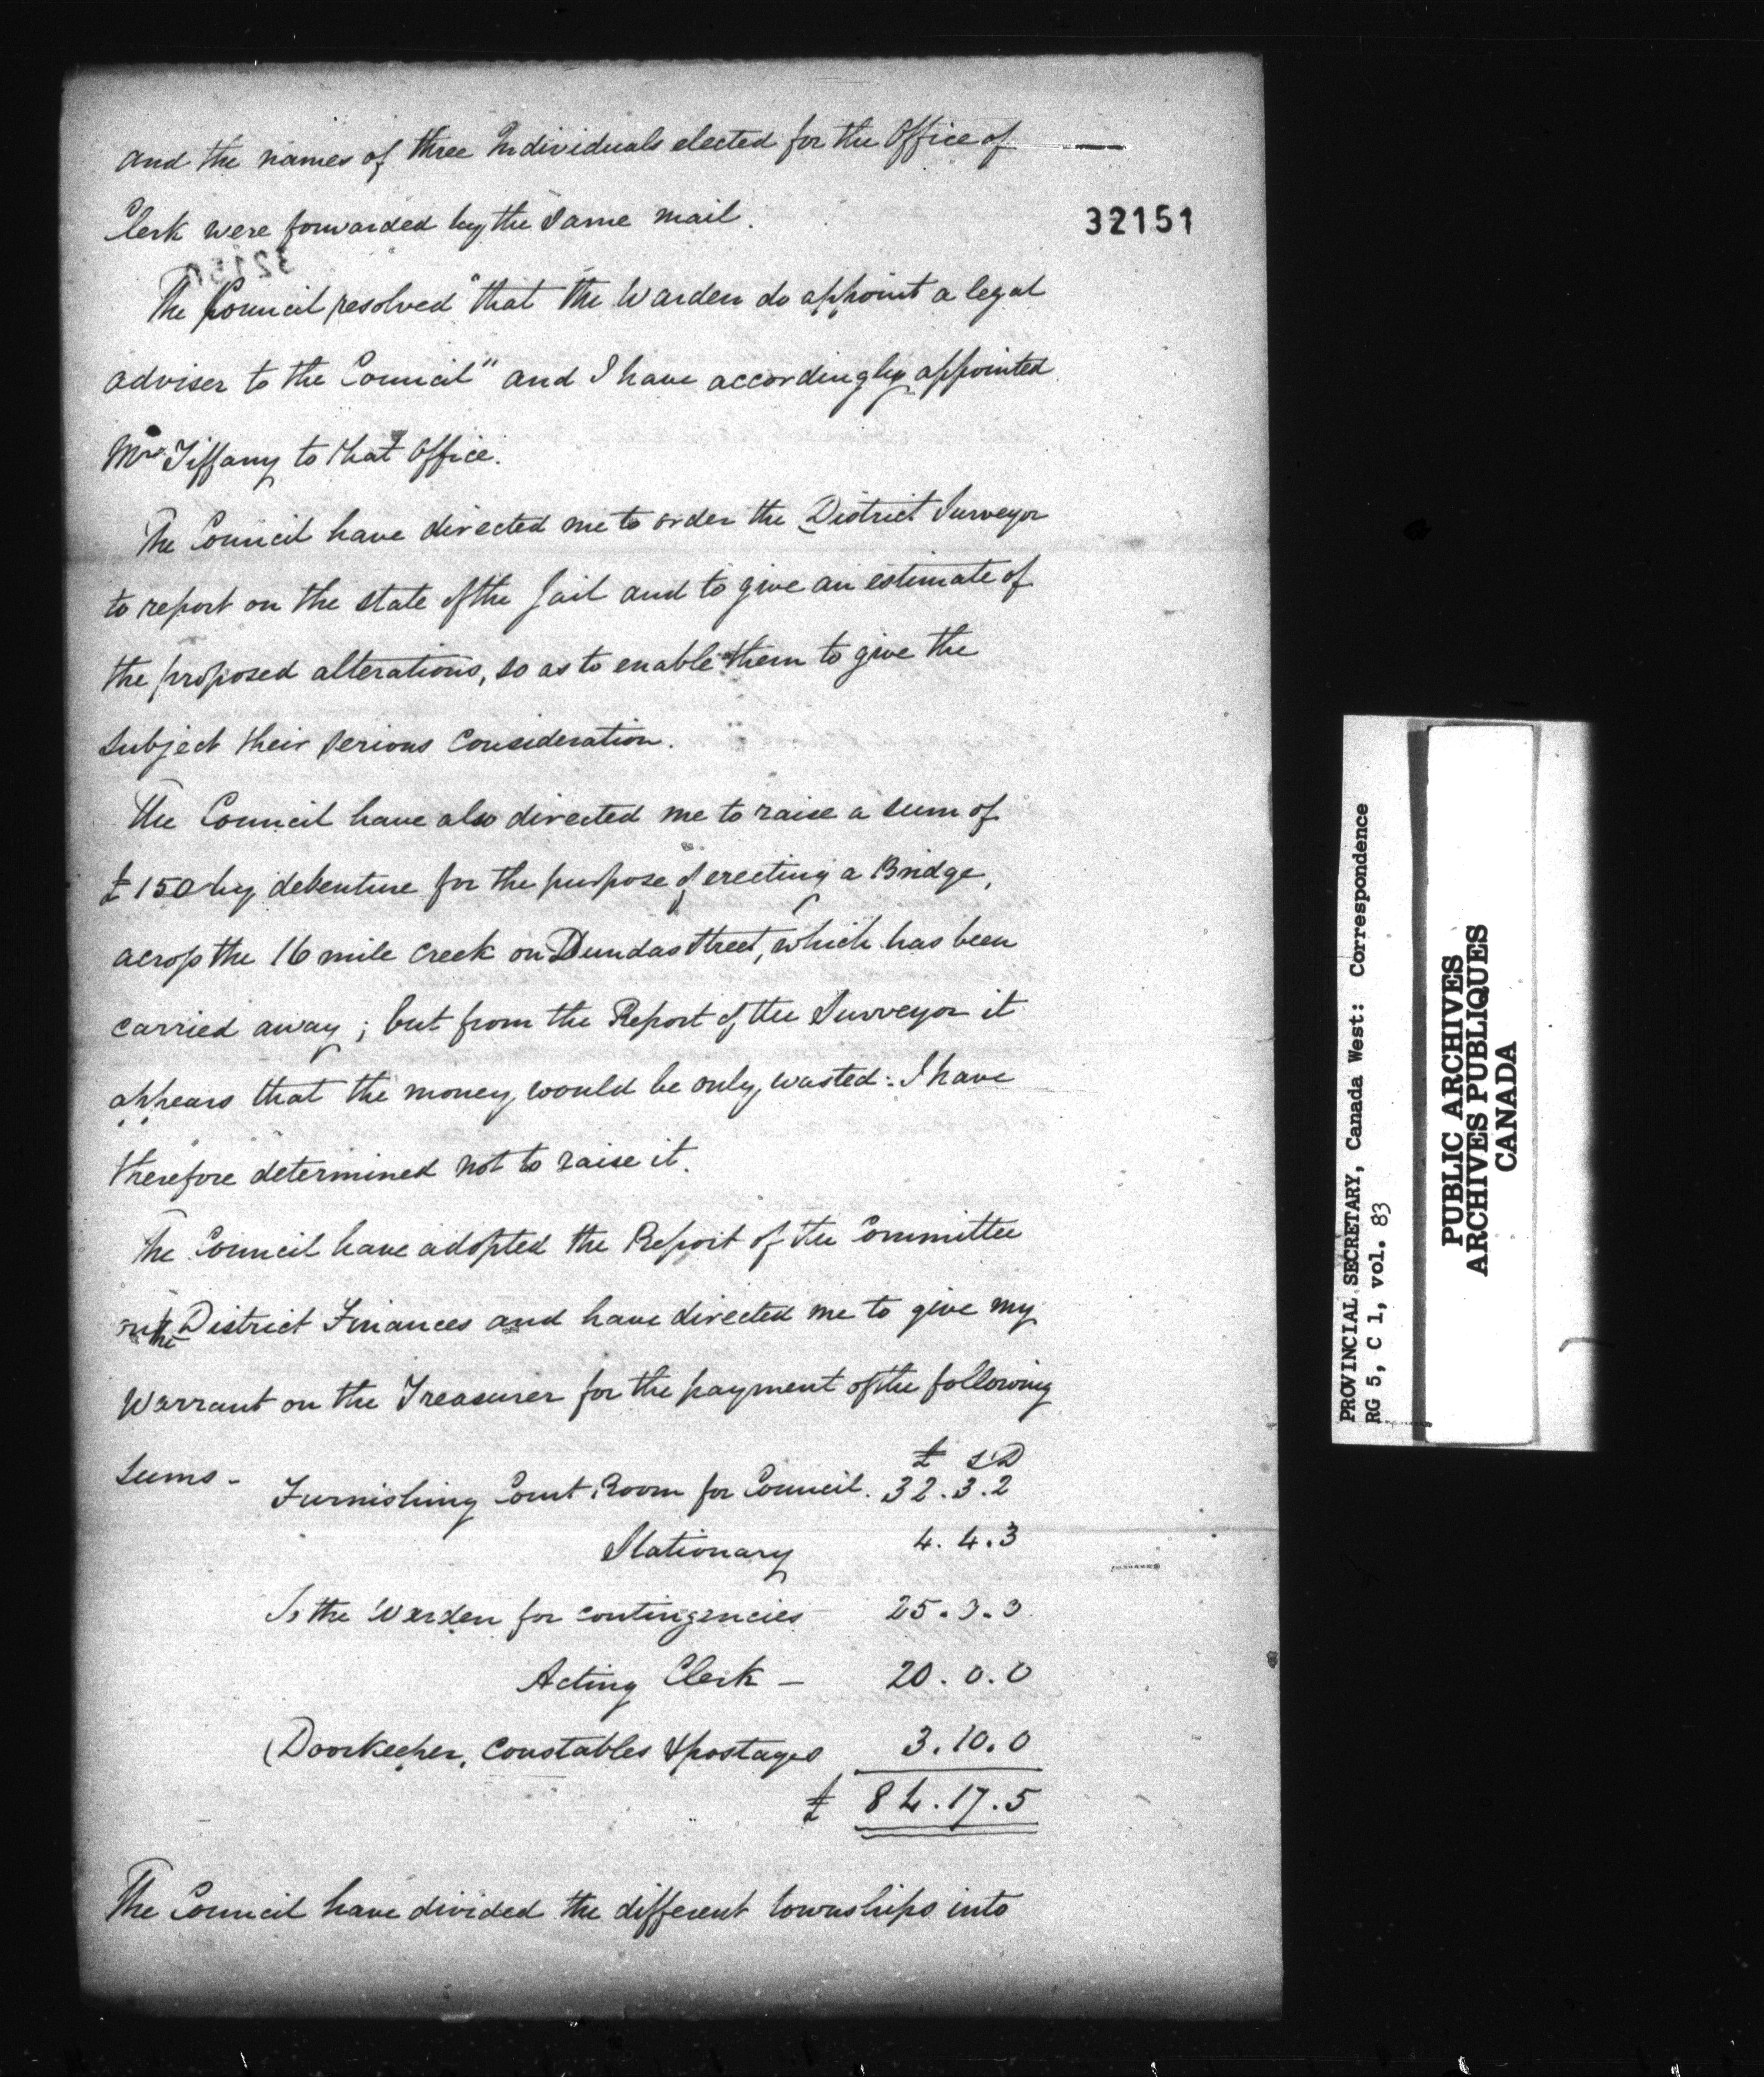 and the names of three Individuals elected for the Office of
Clerk were forwarded by the same mail.
32151
The Council resolved "that the Warden do appoint a legal
adviser to the Council" and I have accordingly appointed
Mr Tiffany to that Office.
The Council have directed me to order the District Surveyor
to report on the state of the Jail and to give an estimate of
the proposed alterations, so as to enable them to give the
subject their serious consideration.
The Council have also directed me to raise a sum of
£150 by debenture for the purpose of erecting a Bridge,
across the 16 mile creek on Dundas Street, which has been
carried away; but from the Report of the Surveyor it
appears that the money would be only wasted: I have
therefore determined not to raise it.
The Council have adopted the Report of the Committee
on the District Finances and have directed me to give my
Warrant on the Treasurer for the payment of the following
£ s D
sums - Furnishing Court Room for Council. 32.3.2
Stationary 4.4.3
To the Warden for contingencies 25.
Acting Clerk - 20.0.0
Doorkeeper, Constables & postages 3.10.0
£ 84.17.5
The Council have divided the different townships into
PROVINCIAL SECRETARY, Canada West: Correspondence
RG 5, C 1, vol. 83
PUBLIC ARCHIVES
ARCHIVES PUBLIQUES
CANADA